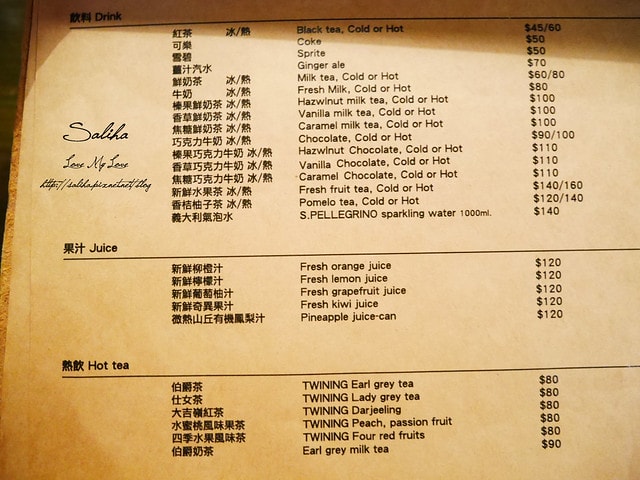 飲料 Drink
紅茶 冰/熱 Black tea, Cold or Hot $45/60
可樂 Coke $50
雪碧 Sprite $50
薑汁汽水 Ginger ale $70
鮮奶茶 冰/熱 Milk tea, Cold or Hot $60/80
牛奶 冰/熱 Fresh Milk, Cold or Hot $80
榛果鮮奶茶 冰/熱 Hazwlnut milk tea, Cold or Hot $100
香草鮮奶茶 冰/熱 Vanilla milk tea, Cold or Hot $100
焦糖鮮奶茶 冰/熱 Caramel milk tea, Cold or Hot $100
巧克力牛奶 冰/熱 Chocolate, Cold or Hot $90/100
榛果巧克力牛奶 冰/熱 Hazwlnut Chocolate, Cold or Hot $110
香草巧克力牛奶 冰/熱 Vanilla Chocolate, Cold or Hot $110
焦糖巧克力牛奶 冰/熱 Caramel Chocolate, Cold or Hot $110
新鮮水果茶 冰/熱 Fresh fruit tea, Cold or Hot $140/160
香桔柚子茶 冰/熱 Pomelo tea, Cold or Hot $120/140
義大利氣泡水 S.PELLEGRINO sparkling water 1000ml. $140
Saliha
Love My Love
http://saliha.pixnet.net/blog
果汁 Juice
新鮮柳橙汁 Fresh orange juice $120
新鮮檸檬汁 Fresh lemon juice $120
新鮮葡萄柚汁 Fresh grapefruit juice $120
新鮮奇異果汁 Fresh kiwi juice $120
微熱山丘有機鳳梨汁 Pineapple juice-can $120
熱飲 Hot tea
伯爵茶 TWINING Earl grey tea $80
仕女茶 TWINING Lady grey tea $80
大吉嶺紅茶 TWINING Darjeeling $80
水蜜桃風味果茶 TWINING Peach, passion fruit $80
四季水果風味茶 TWINING Four red fruits $80
伯爵奶茶 Earl grey milk tea $90